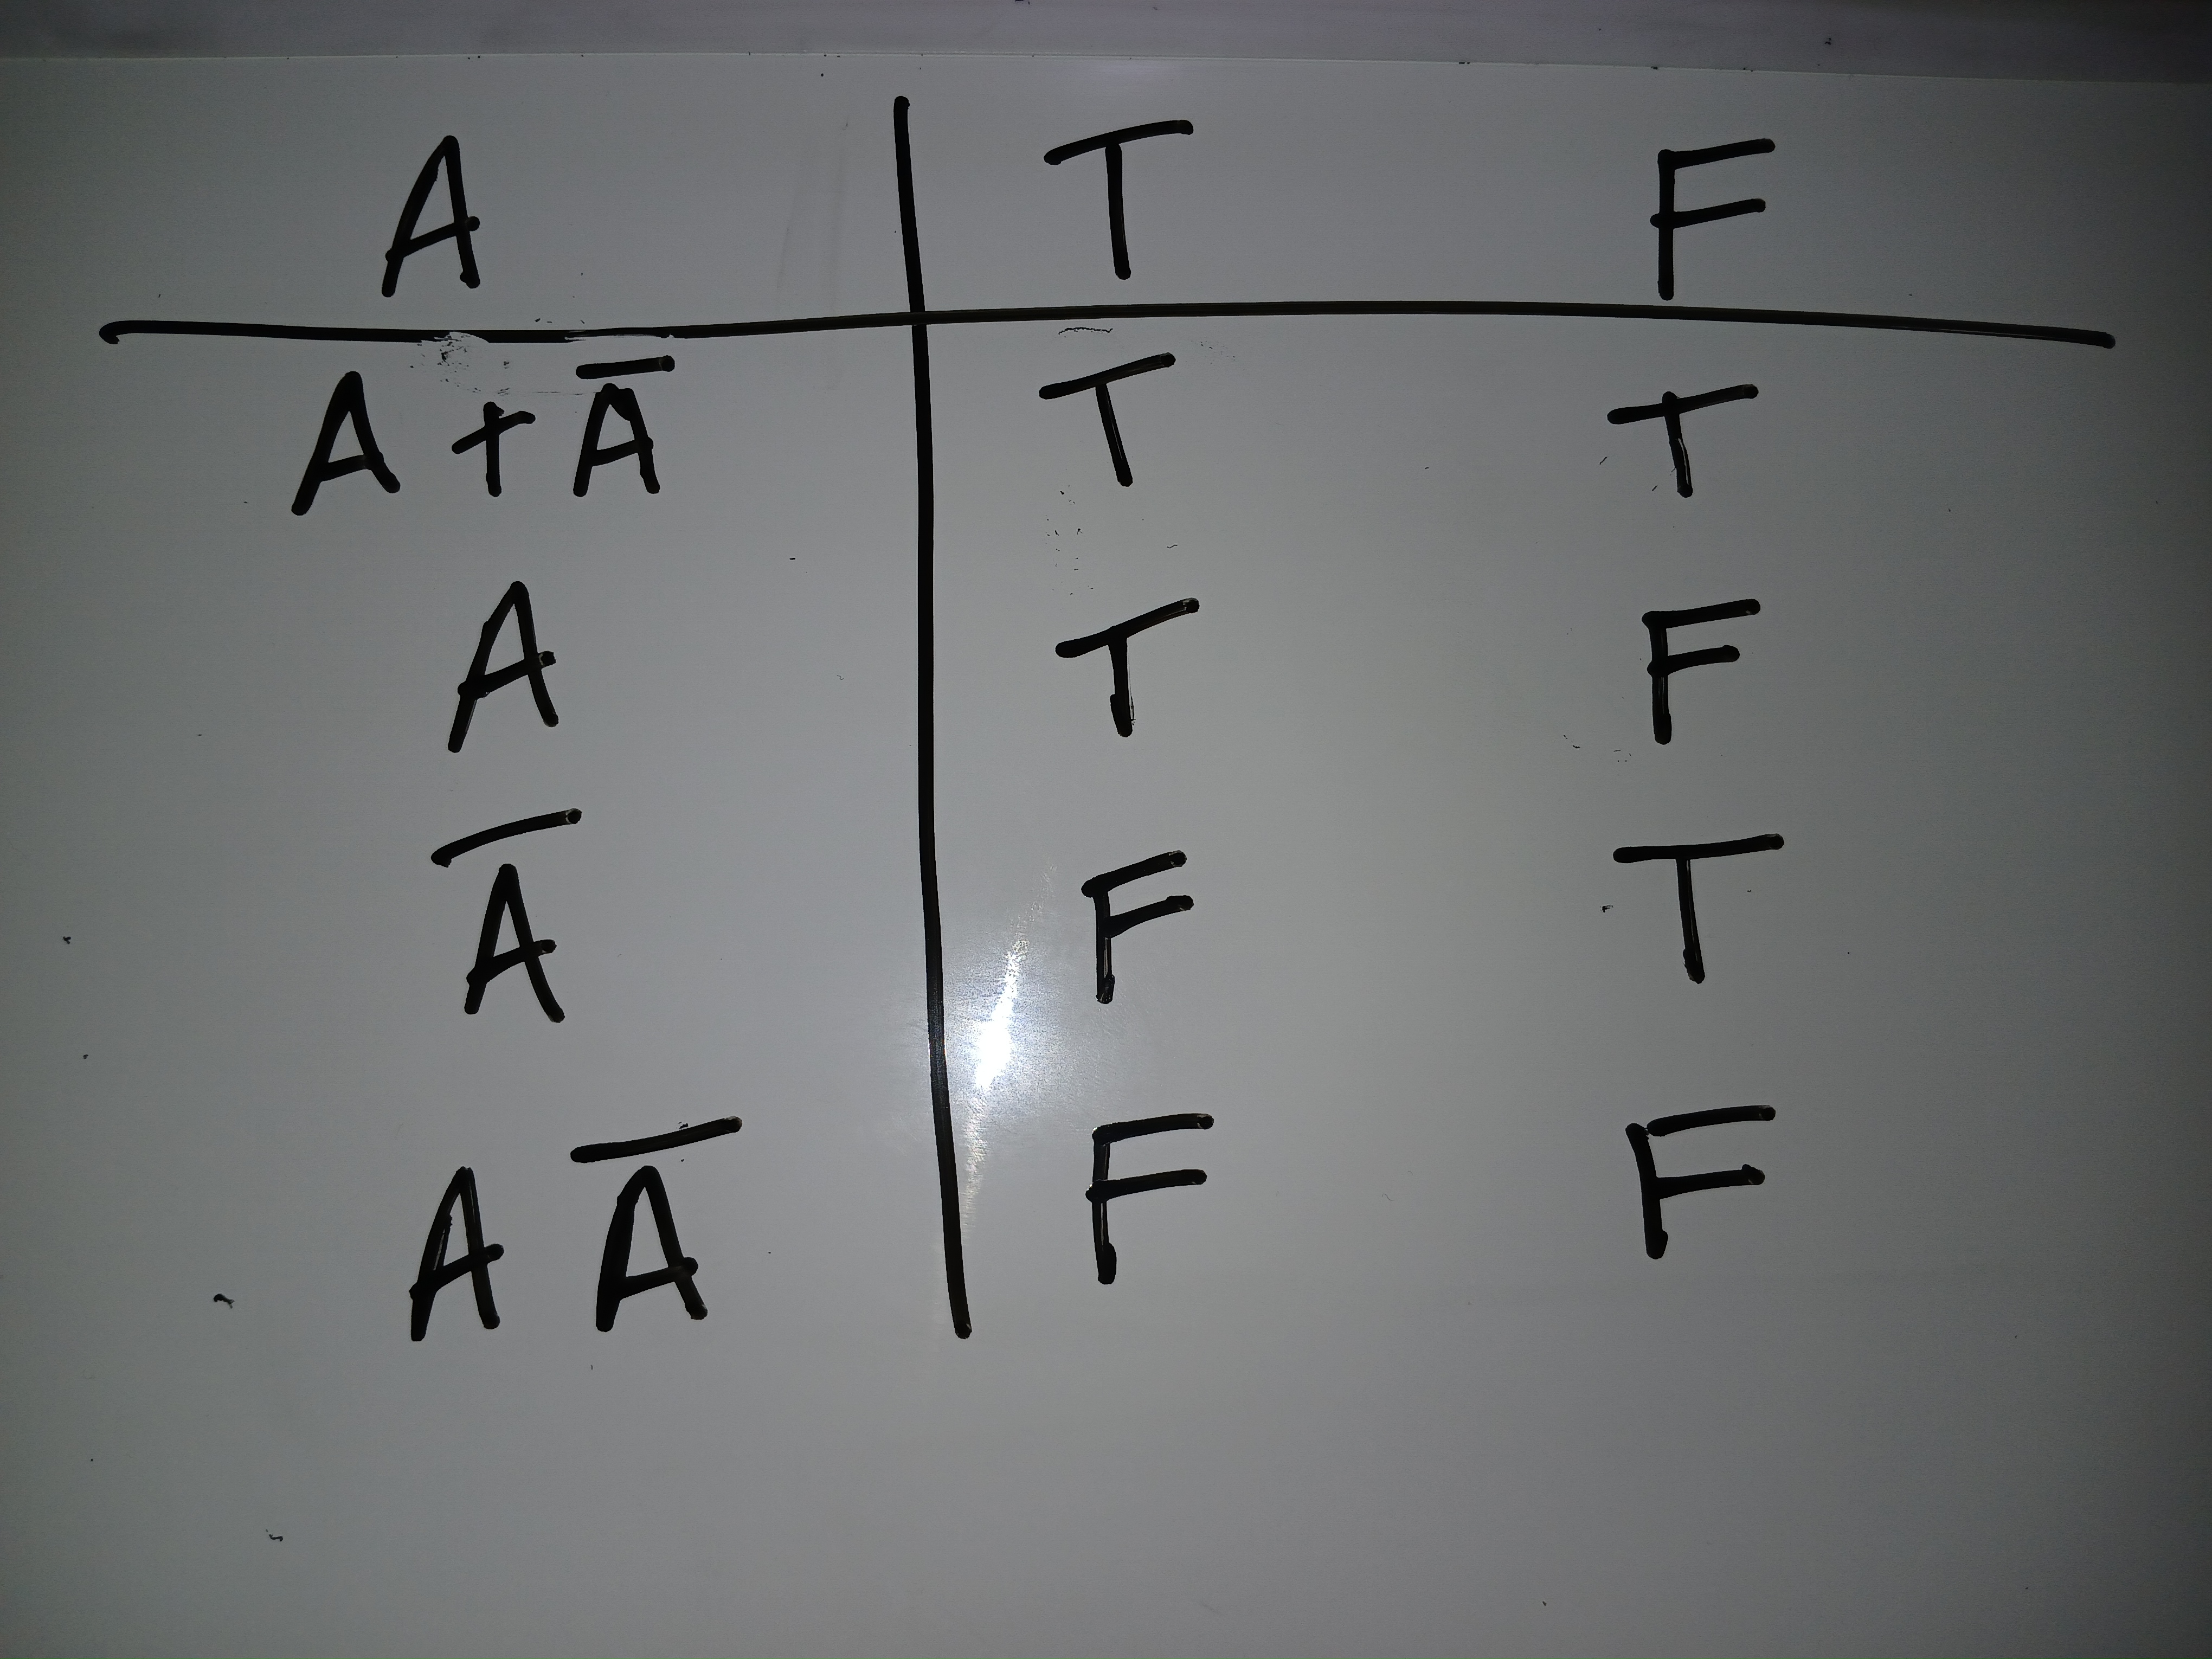 A T F
A + Ā T T
A T F
Ā F T
A Ā F F